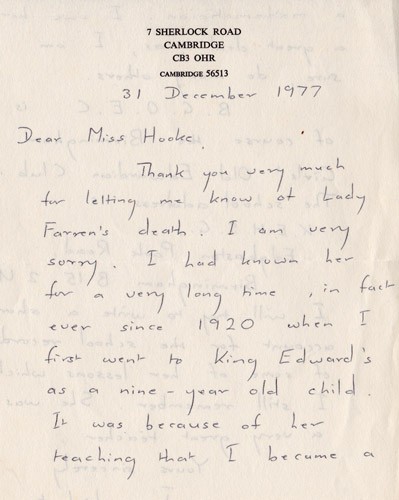 7 SHERLOCK ROAD
CAMBRIDGE
CB3 OHR
CAMBRIDGE 56513
31 December 1977
Dear Miss Hooke,
Thank you very much
for letting me know of Lady
Farren's death. I am very
sorry. I had known her
for a very long time, in fact
ever since 1920 when I
first went to King Edward's
as a nine-year old child.
It was because of her
teaching that I became a